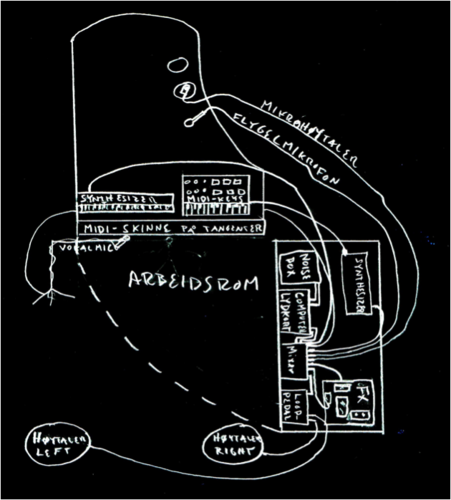 MIKROHØYTALER
FLYGELMIKROFON
SYNTHESIZER
MIDI-KEYS
MIDI-SKINNE PÅ TANGENTER
VOKALMIC
ARBEIDSROM
NOISE
BOX
SYNTHESIZER
COMPUTER
LYDKORT
Mixer
FX
LOOP-
PEDAL
HØYTALER
LEFT
HØYTALER
RIGHT